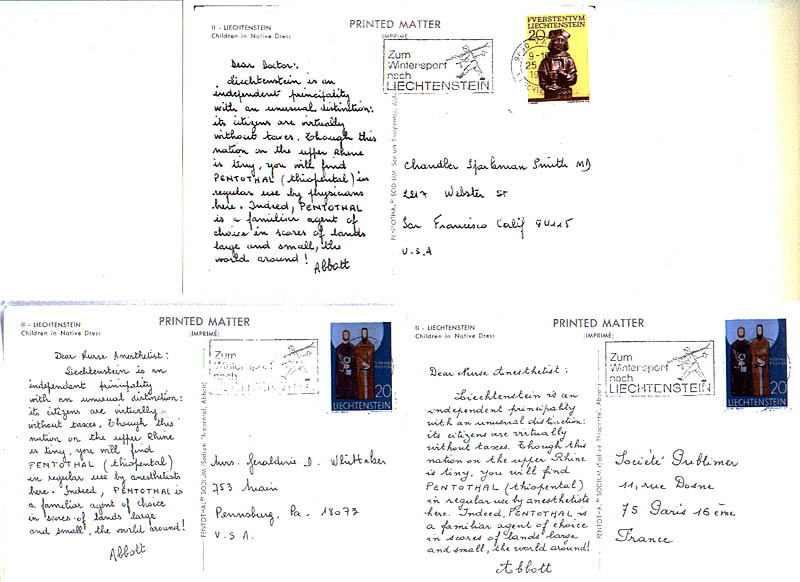 II - LIECHTENSTEIN
Children in Native Dress
PRINTED MATTER
(IMPRIMÉ)
Zum
Wintersport
nach
LIECHTENSTEIN
FVERSTENTVM
LIECHTENSTEIN
20
9-10
25
19
Dear Doctor:
Liechtenstein is an
independent principality
with an unusual distinction:
its citizens are virtually
without taxes. Though this
nation on the upper Rhine
is tiny, you will find
PENTOTHAL (thiopental) in
regular use by physicians
here. Indeed, PENTOTHAL
is a familiar agent of
choice in scores of lands
large and small, the
world around!
Abbott
PENTOTHAL® SODIUM (Sodium Thiopental, Abbott)
Chandler Sparkman Smith MD
2217 Webster St
San Francisco Calif 94115
U.S.A
II - LIECHTENSTEIN
Children in Native Dress
PRINTED MATTER
(IMPRIMÉ)
Zum
Wintersport
nach
LIECHTENSTEIN
20
LIECHTENSTEIN
Dear Nurse Anesthetist:
Liechtenstein is an
independent principality
with an unusual distinction:
its citizens are virtually
without taxes. Though this
nation on the upper Rhine
is tiny, you will find
PENTOTHAL (thiopental)
in regular use by anesthetists
here. Indeed, PENTOTHAL is
a familiar agent of choice
in scores of lands large
and small, the world around!
Abbott
PENTOTHAL® SODIUM (Sodium Thiopental, Abbott)
Mrs. Geraldine D. Whittaker
753 Main
Pennsburg, Pa - 18073
U.S.A.
II - LIECHTENSTEIN
Children in Native Dress
PRINTED MATTER
(IMPRIMÉ)
Zum
Wintersport
nach
LIECHTENSTEIN
20
LIECHTENSTEIN
Dear Nurse Anesthetist:
Liechtenstein is an
independent principality
with an unusual distinction:
its citizens are virtually
without taxes. Though this
nation on the upper Rhine
is tiny, you will find
PENTOTHAL (thiopental)
in regular use by anesthetists
here. Indeed, PENTOTHAL is
a familiar agent of choice
in scores of lands large
and small, the world around!
Abbott
PENTOTHAL® SODIUM (Sodium Thiopental, Abbott)
Société Publimer
11, rue Dosne
75 Paris 16ème
France